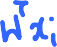 Wᵀxᵢ